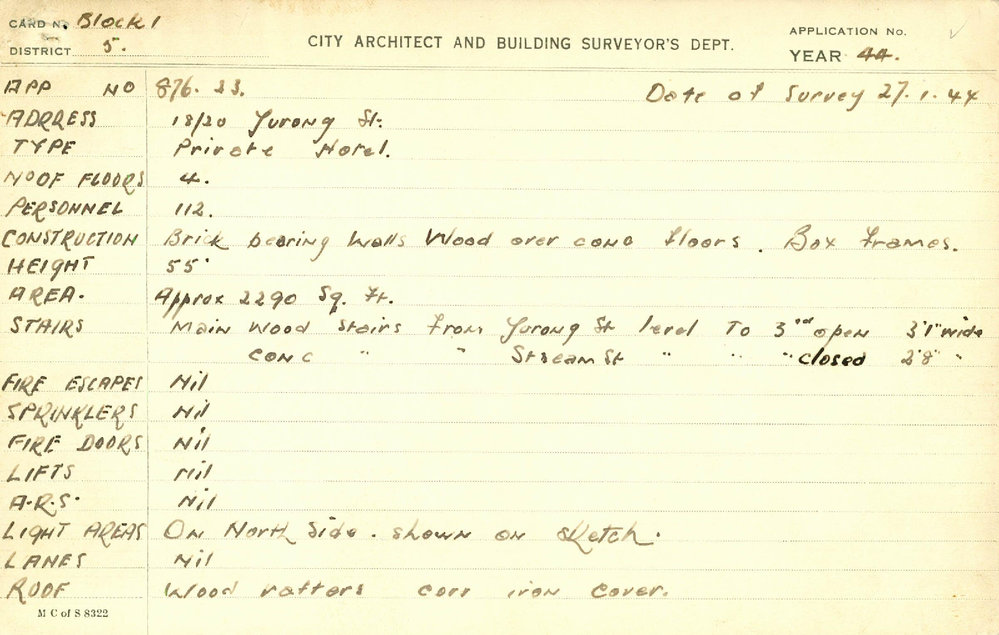 CARD No. Block 1
DISTRICT 5.
CITY ARCHITECT AND BUILDING SURVEYOR'S DEPT.
APPLICATION No.
YEAR 44.
APP NO 876. 23. Date of Survey 27.1.44
ADDRESS 18/20 Yurong St.
TYPE Private Hotel.
NO OF FLOORS 4.
PERSONNEL 112.
CONSTRUCTION Brick bearing Walls Wood over conc floors. Box Frames.
HEIGHT 55'
AREA. Approx 2290 Sq. Ft.
STAIRS Main Wood Stairs from Yurong St level To 3rd open 3'1" wide
conc " " Stream St " " " closed 2'8" "
FIRE ESCAPES Nil
SPRINKLERS Nil
FIRE DOORS Nil
LIFTS Nil
A.R.S. Nil
LIGHT AREAS On North Side. shown on sketch.
LANES Nil
ROOF Wood rafters corr iron cover.
M C of S 8322